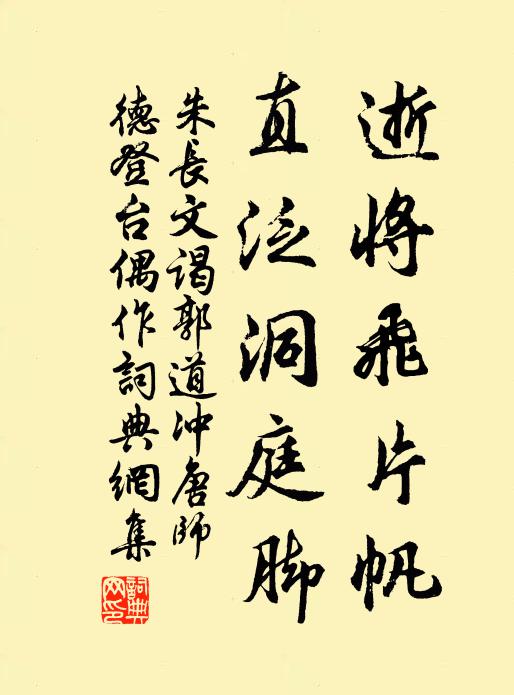 逝将飛片帆
直泛洞庭脚
朱長文謁郭道冲唐師
德登台偶作詞典網集
詞典網印